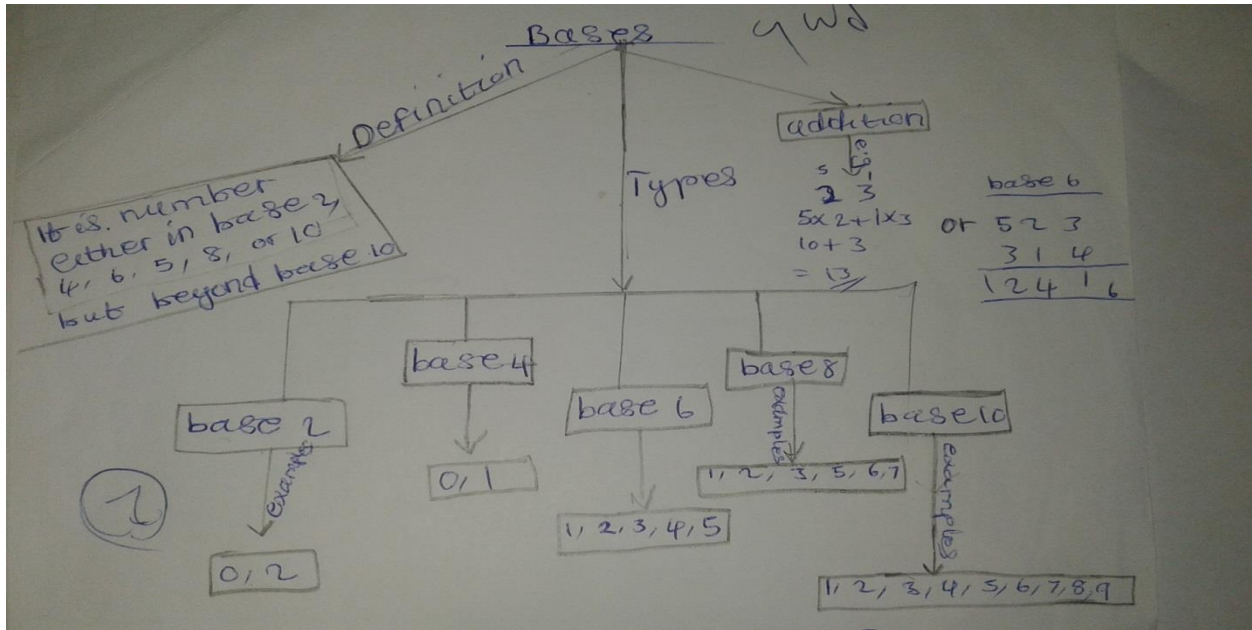 Bases
Definition
It is. number
either in base 2,
4, 6, 5, 8, or 10
but beyond base 10
Types
addition
e.g.
5
2 3
5x2+1x3
10+3
= 13
base 6
or 5 2 3
3 1 4
1 2 4 1 6
base 2
examples
0, 2
base 4
0, 1
base 6
1, 2, 3, 4, 5
base 8
examples
1, 2, 3, 5, 6, 7
base 10
examples
1, 2, 3, 4, 5, 6, 7, 8, 9
1